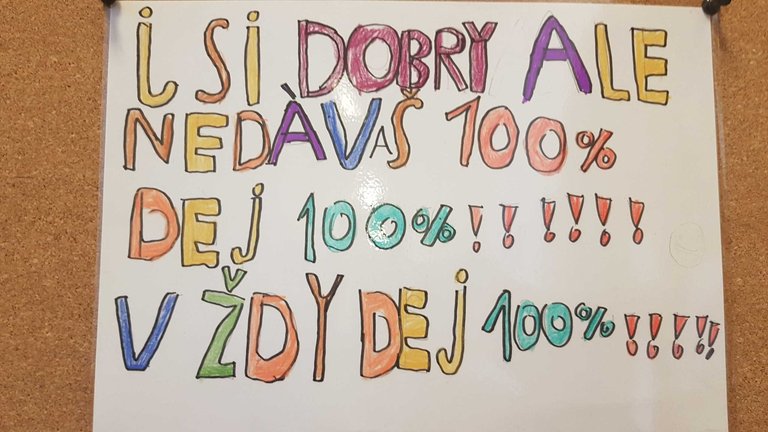 i SI DOBRY ALE
NEDÀVAŠ 100%
DEJ 100%!!!!!!
V ŽDY DEJ 100%!!!!!